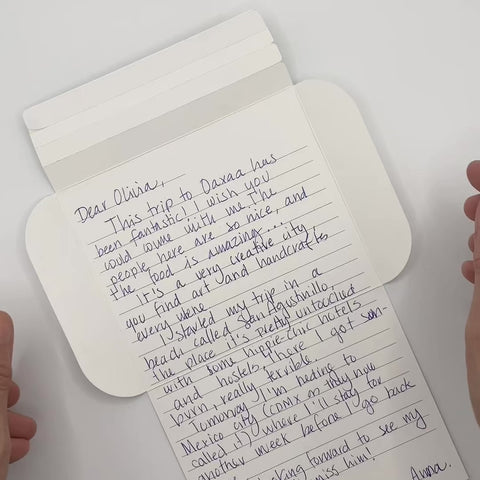 Dear Olivia,
This trip to Oaxaa has
been fantastic! I wish you
could come with me. The
people here are so nice, and
the food is amazing...
It's a very creative city,
you find art and handcrafts
every were.
I started my trip in a
beach called San Agustinillo,
the place it's pretty untouched
with some hippie-chic hotels
and hostels, there I got sun-
burn, really terrible.
I'm heding to
Mexico city (CDMX as they now
called it) where i'll stay for
another week before I go back
looking forward to see my
miss him!
Anna.